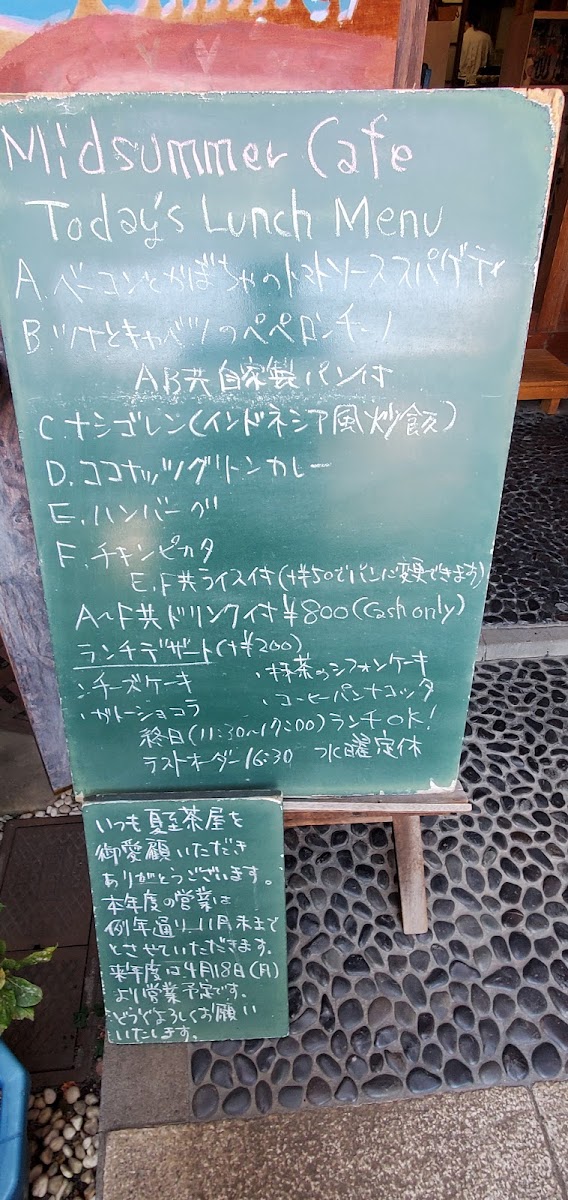 Midsummer Cafe
Today's Lunch Menu
A. ベーコンとかぼちゃのトマトソーススパゲティ
B. ツナとキャベツのペペロンチーノ
AB共自家製パン付
C. ナシゴレン(インドネシア風炒飯)
D. ココナッツグリーンカレー
E. ハンバーグ
F. チキンピカタ
E.F共ライス付(+¥50でパンに変更できます)
A~F共ドリンク付¥800(Cash only)
ランチデザート(+¥200)
・チーズケーキ ・抹茶のシフォンケーキ
・ガトーショコラ ・コーヒーパンナコッタ
終日(11:30~17:00)ランチOK!
ラストオーダー16:30 水曜定休
いつも夏至茶屋を
御愛顧いただき
ありがとうございます。
本年度の営業は
例年通り、11月末まで
とさせていただきます。
来年度は4月18日(月)
より営業予定です。
どうぞよろしくお願い
いたします。